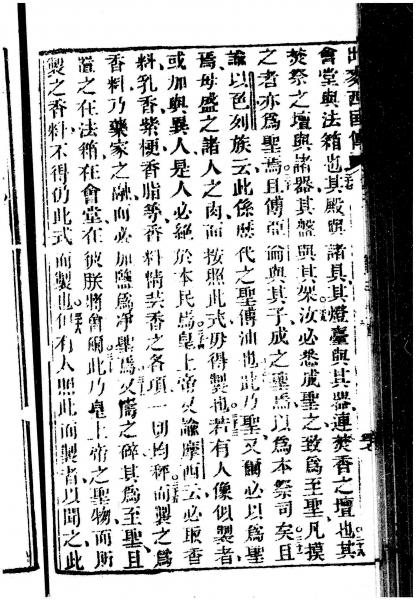 會堂與法箱也其殿與諸具其燈臺與其器連焚香之壇也其
焚祭之壇與諸器其盤與其架汝必悉成聖之致為至聖凡摸
之者亦為聖焉且傅亞論與其子成之聖焉以為本祭司矣且
諭以色列族云此係歷代之聖傅油也此乃聖又爾必以為聖
焉毋盛之諸人之肉而按照此式毋得製也若有人像似製者
或加與異人是人必絕於本民焉皇上帝又諭摩西云必取香
料乳香紫梗香脂等香料精裝香之各項一切均秤而製之為
香料乃藥家之融而必加鹽為净聖焉又擣之碎其為至聖且
置之在法箱在會堂在彼朕將會爾此乃皇上帝之聖物而所
製之香料不得仍此式而製也但有人照此而製者以聞之此